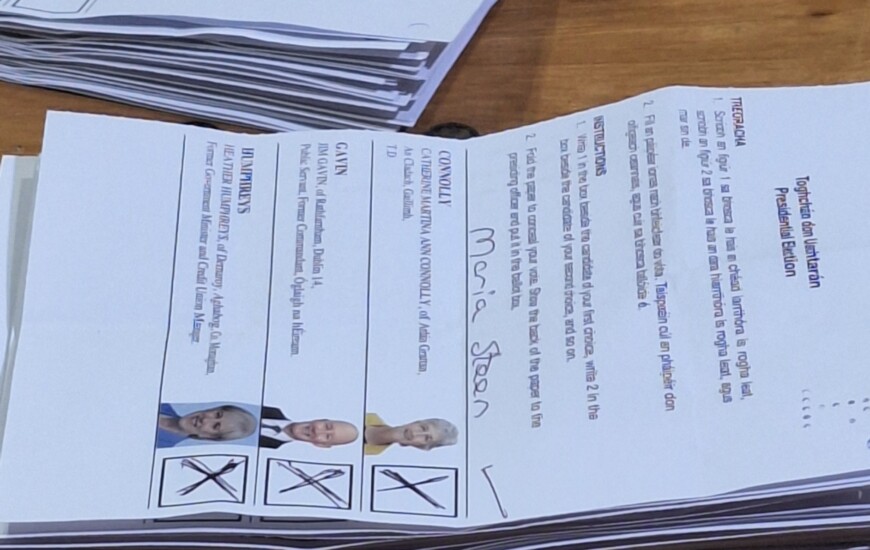 Toghchán don Uachtarán
Presidential Election
TREORACHA
1. Scríobh an figiúr 1 sa bhosca le hais an chéad iarrthóra is rogha leat,
scríobh an figiúr 2 sa bhosca le hais an dara hiarrthóra is rogha leat, agus
mar sin de.
2. Fill an páipéar ionas nach bhfeicfear do vóta. Taispeáin cúl an pháipéir don
oifigeach ceannais, agus cuir sa bhosca ballóide é.
INSTRUCTIONS
1. Write 1 in the box beside the candidate of your first choice, write 2 in the
box beside the candidate of your second choice, and so on.
2. Fold the paper to conceal your vote. Show the back of the paper to the
presiding officer and put it in the ballot box.
Maria Steen
CONNOLLY
CATHERINE MARTINA ANN CONNOLLY, of
An Cladach, Gaillimh,
T.D
GAVIN
JIM GAVIN, of Rathfarnham, Dublin 14,
Public Servant, Former Comamndant, Óglaigh na hÉireann.
HUMPHREYS
HEATHER HUMPHREYS, of Dernaroy, Aghabog, Co. Monaghan,
Former Government Minister and Credit Union Manager.